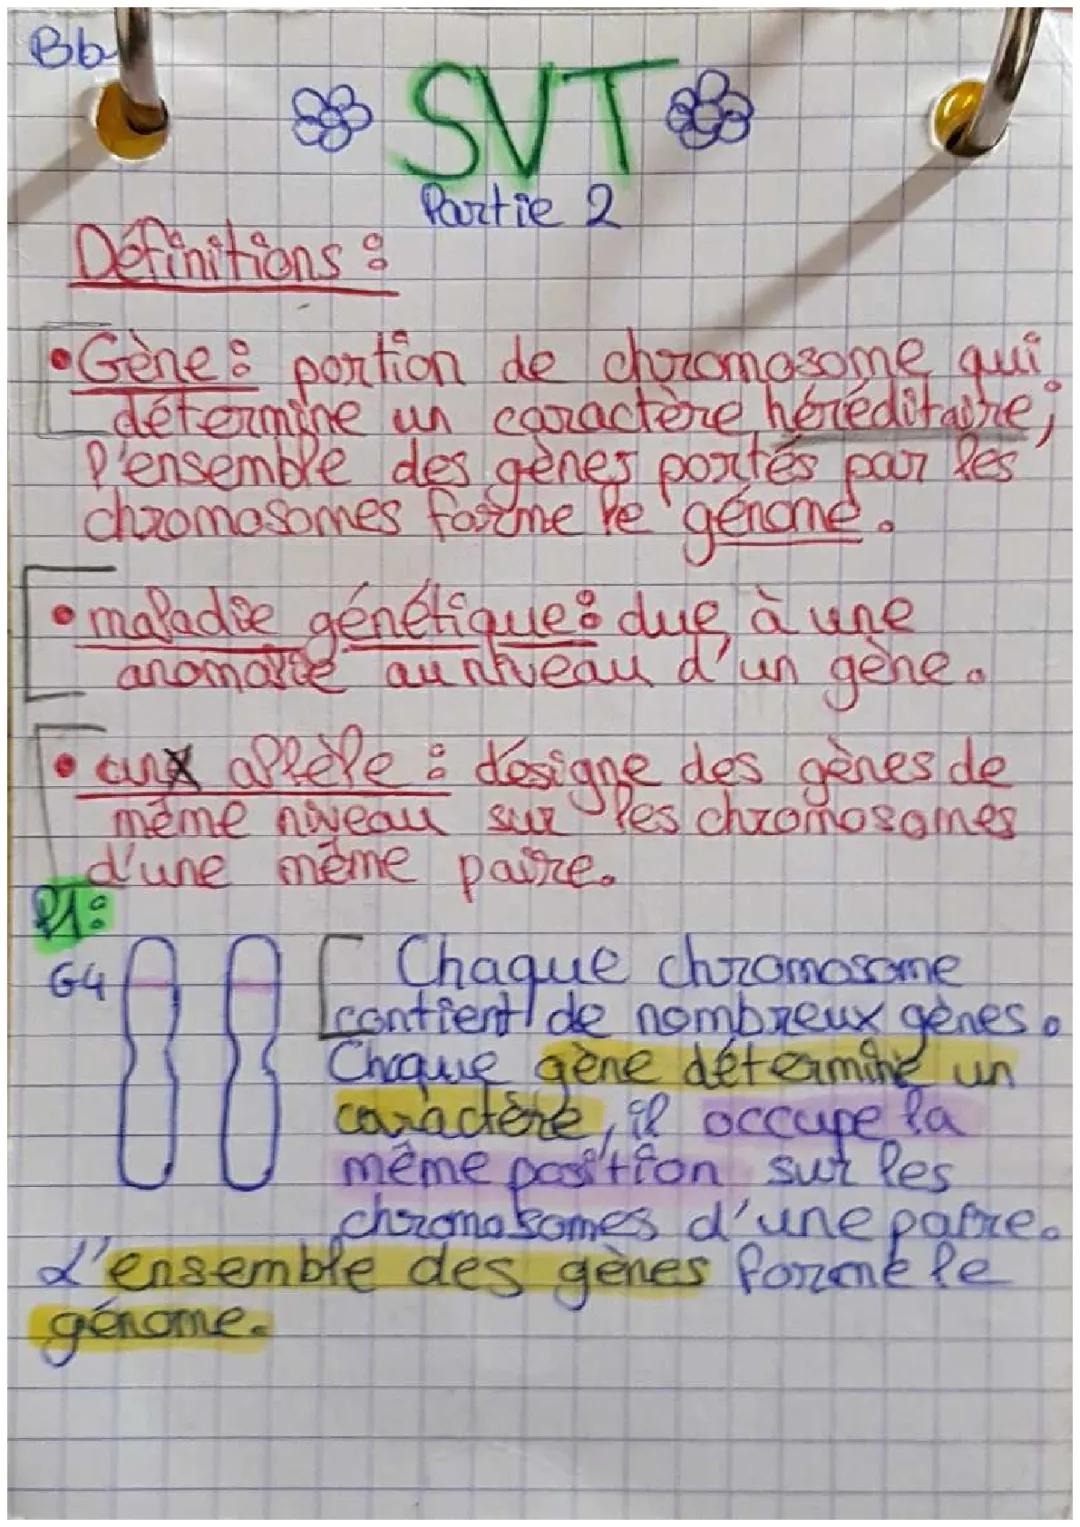 Bb
SVT
Partie 2
Définitions :
•Gène : portion de chromosome qui
détermine un caractère héréditaire ;
l'ensemble des gènes portés par les
chromosomes forme le génome.
• maladie génétique : due à une
anomalie au niveau d'un gène.
• un allèle : désigne des gènes de
même niveau sur les chromosomes
d'une même paire.
P1 :
G4
Chaque chromosome
contient de nombreux gènes.
Chaque gène détermine un
caractère, il occupe la
même position sur les
chromosomes d'une paire.
L'ensemble des gènes forme le
génome.